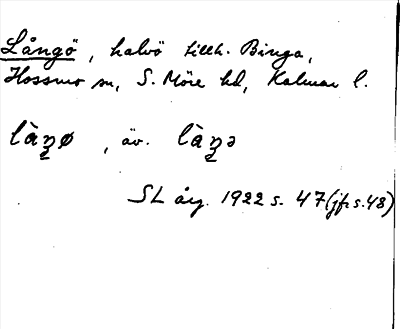 Långö, halvö tillh. Binga,
Hossmo sn, S. Möre hd, Kalmar l.
làŋø, äv. làŋə
SL årg. 1922 s. 47 (jfr s. 48)